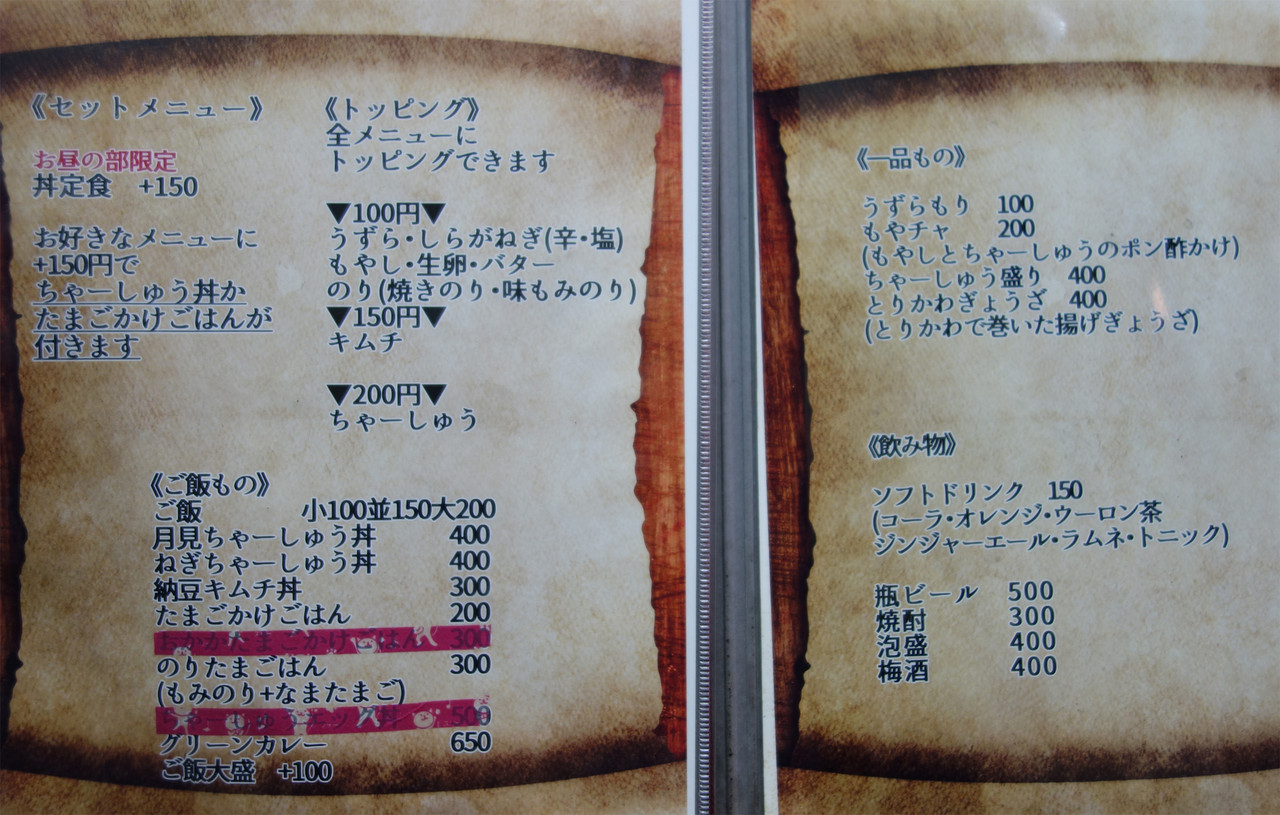 《セットメニュー》
お昼の部限定
丼定食 +150
お好きなメニューに
+150円で
ちゃーしゅう丼か
たまごかけごはんが
付きます
《トッピング》
全メニューに
トッピングできます
▼100円▼
うずら・しらがねぎ(辛・塩)
もやし・生卵・バター
のり(焼きのり・味もみのり)
▼150円▼
キムチ
▼200円▼
ちゃーしゅう
《ご飯もの》
ご飯 小100並150大200
月見ちゃーしゅう丼 400
ねぎちゃーしゅう丼 400
納豆キムチ丼 300
たまごかけごはん 200
おかかたまごかけごはん 300
のりたまごはん 300
(もみのり+なまたまご)
ちゃーしゅうエッグ丼 500
グリーンカレー 650
ご飯大盛 +100
《一品もの》
うずらもり 100
もやチャ 200
(もやしとちゃーしゅうのポン酢かけ)
ちゃーしゅう盛り 400
とりかわぎょうざ 400
(とりかわで巻いた揚げぎょうざ)
《飲み物》
ソフトドリンク 150
(コーラ・オレンジ・ウーロン茶
ジンジャーエール・ラムネ・トニック)
瓶ビール 500
焼酎 300
泡盛 400
梅酒 400